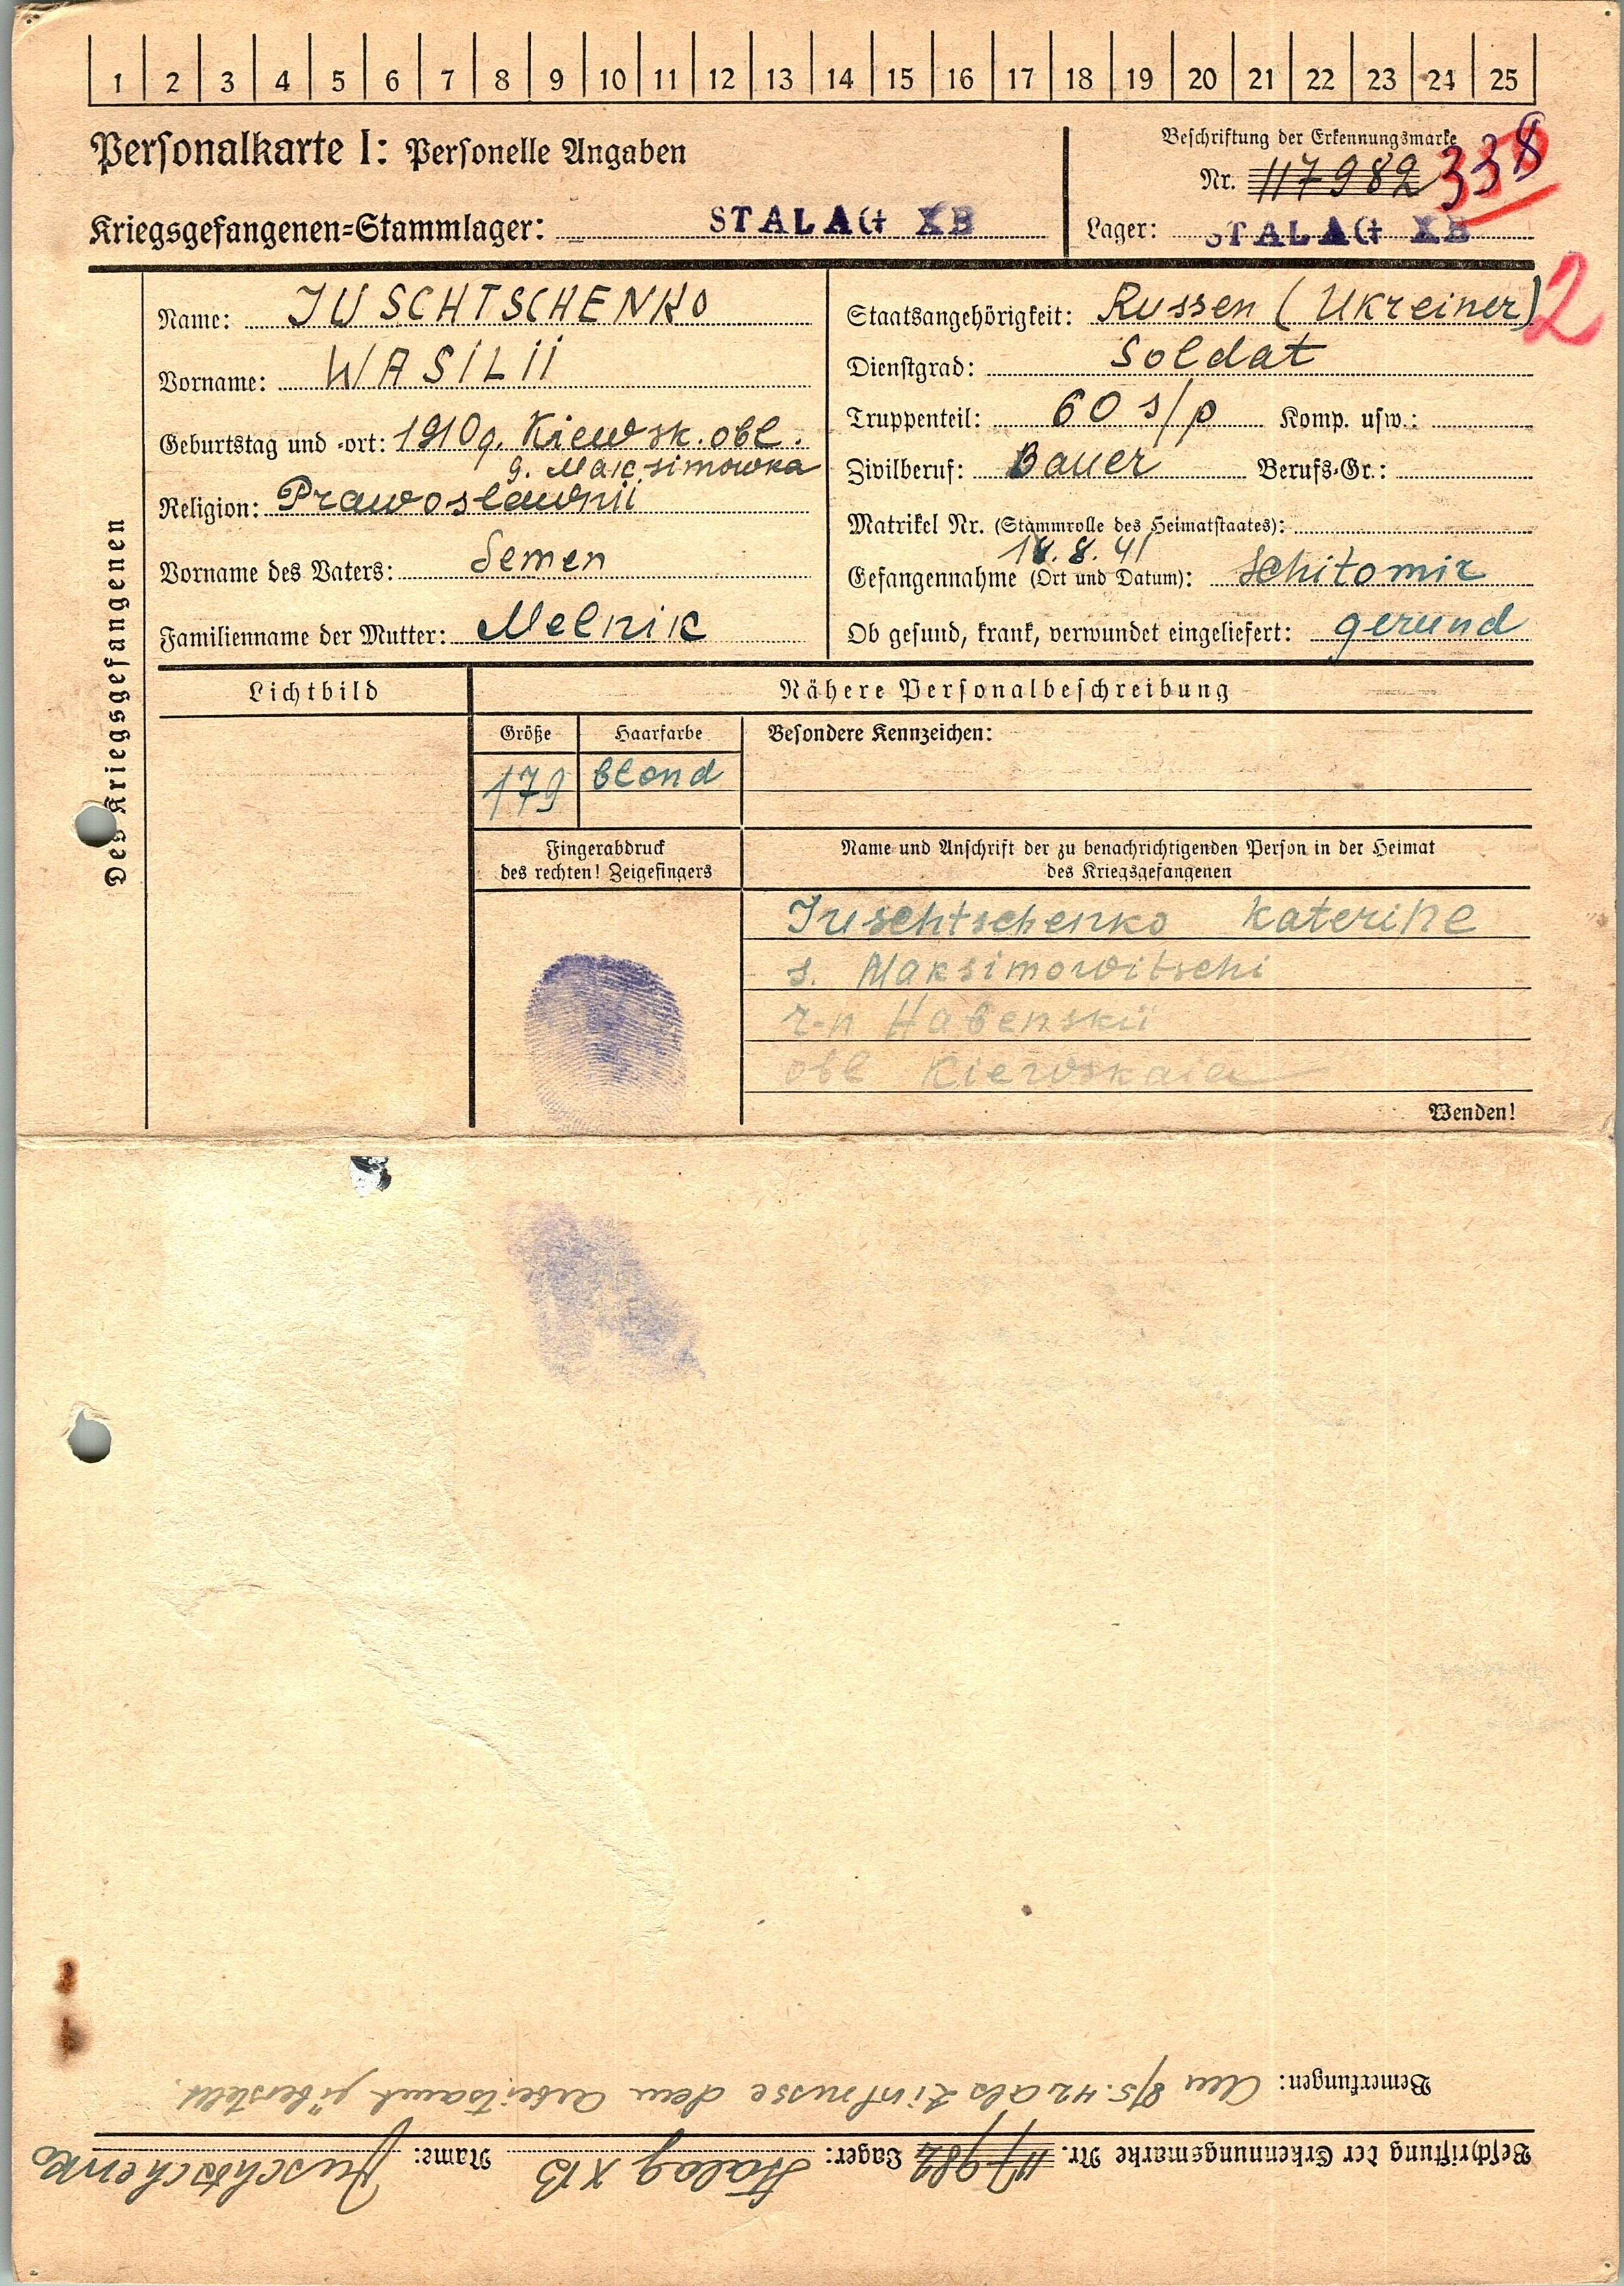 1 2 3 4 5 6 7 8 9 10 11 12 13 14 15 16 17 18 19 20 21 22 23 24 25
Personalkarte I: Personelle Angaben
Beschriftung der Erkennungsmarke
Nr. 117982 338
Kriegsgefangenen-Stammlager: STALAG XB
Lager: STALAG XB
2
Des Kriegsgefangenen
Name: JUSCHTSCHENKO
Vorname: WASILII
Geburtstag und -ort: 1910 g. Kiewsk. obl.
g. Maksimowka
Religion: Prawoslawnii
Vorname des Vaters: Semen
Familienname der Mutter: Melnik
Staatsangehörigkeit: Russen (Ukreiner)
Dienstgrad: Soldat
Truppenteil: 60 s/p Komp. usw.:
Zivilberuf: Bauer Berufs-Gr.:
Matrikel Nr. (Stammrolle des Heimatstaates):
18.8.41
Gefangennahme (Ort und Datum): Schitomir
Ob gesund, krank, verwundet eingeliefert: gesund
Lichtbild
Nähere Personalbeschreibung
Größe Haarfarbe Besondere Kennzeichen:
179 blond
Fingerabdruck
des rechten! Zeigefingers
Name und Anschrift der zu benachrichtigenden Person in der Heimat
des Kriegsgefangenen
Juschtschenko Katerine
s. Maksimowitschi
r-n Habenskii
obl Kiewskaia
Wenden!
Beschriftung der Erkennungsmarke Nr. 117982 Lager: Stalag XB Name: Juschtschenko
Bemerkungen: Am 8/5.42 als Zivilrusse dem Arbeitsamt überstellt.